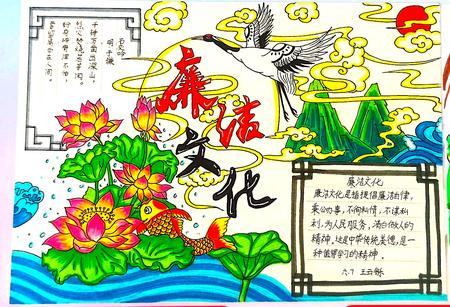 石灰吟
明 于谦
千锤万凿出深山，
烈火焚烧若等闲。
粉身碎骨浑不怕，
要留清白在人间。
廉洁
文化
廉洁文化
廉洁文化是指提倡廉洁自律，
秉公办事，不徇私情，不谋私
利，为人民服务，清白做人的
精神。这是中华传统美德，是一
种值得学习的精神。
六.7 王云